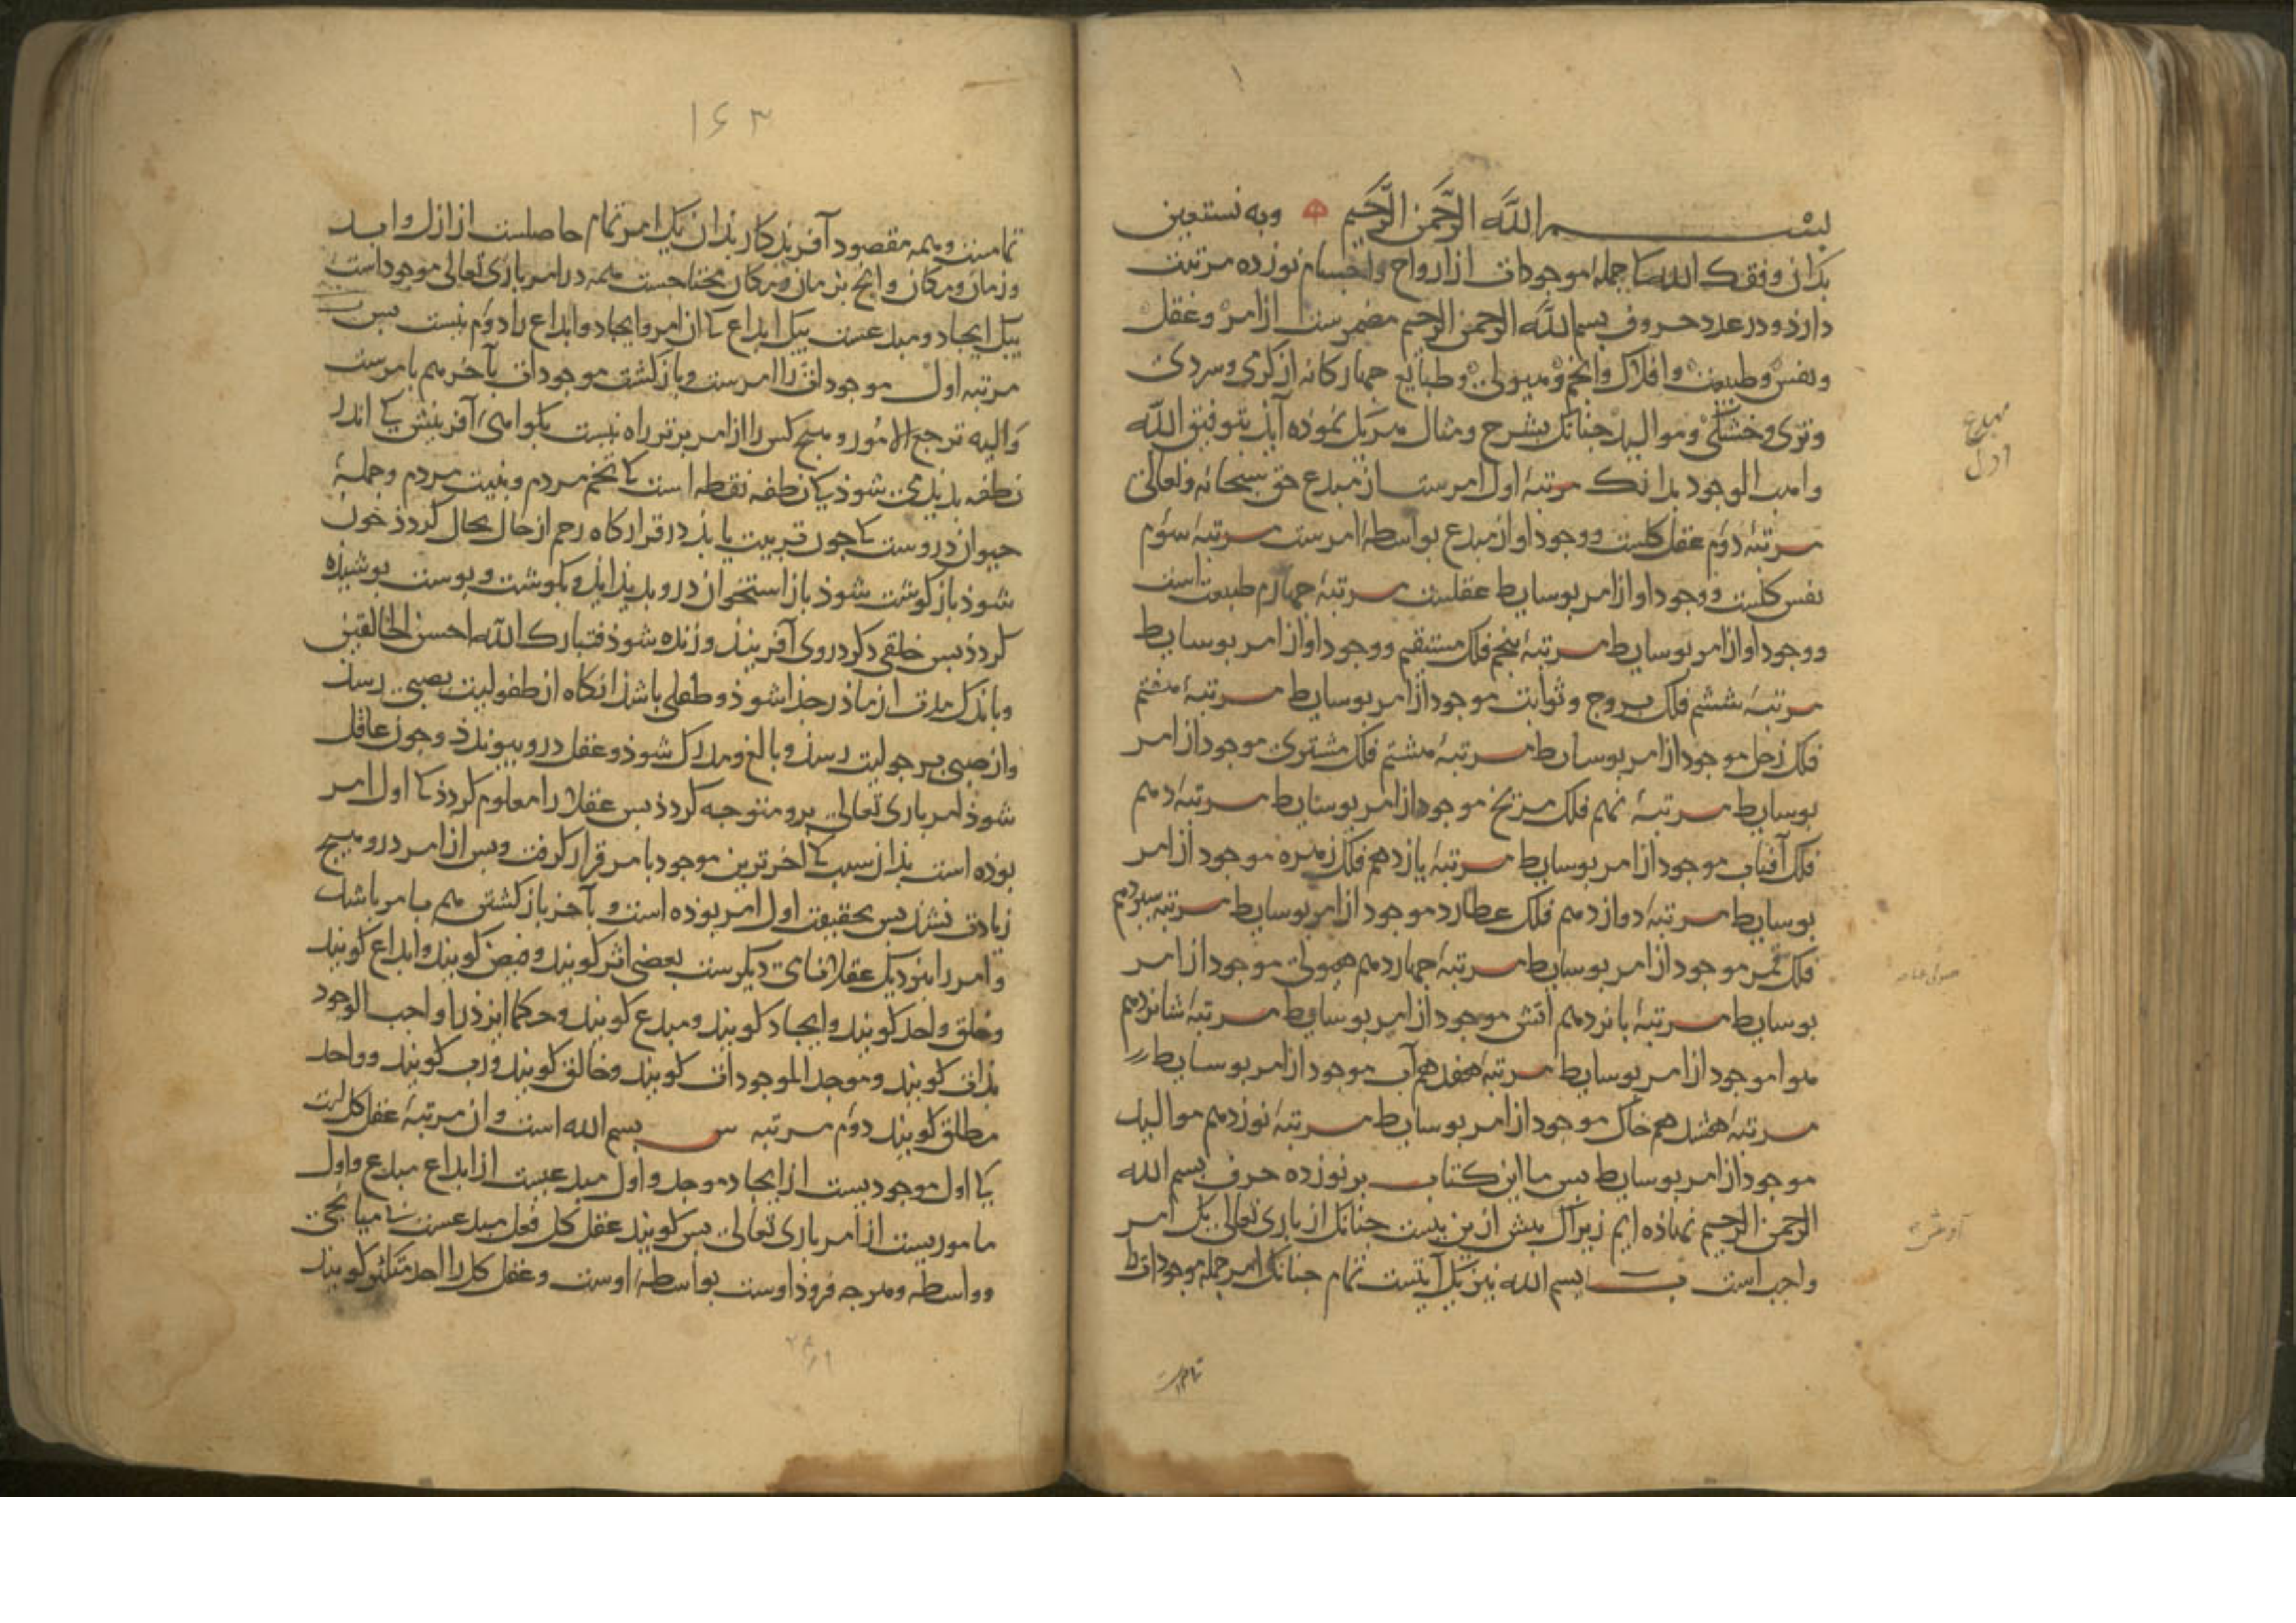 بسم الله الرحمن الرحیم وبه نستعین
بدان وفقک الله کا جملهٔ موجودات از ارواح واجسام نوزده مرتبت
دارذ ودر عدد حروف بسم الله الرحمن الرحیم مضمرست از امر وعقل
ونفس وطبیعت وافلاک وانجم وهیولی وطبایع جهارکانه از کرمی وسردی
وتری وخشکی وموالید جنانک بشرح ومثال هر یک نموده آیذ بتوفیق الله
واهب الوجود بدانک مرتبهٔ اول امرست از مبدع حق سبحانه وتعالی
مرتبهٔ دوم عقل کلست ووجود او از مبدع بواسطهٔ امرست مرتبهٔ سوم
نفس کلست ووجود او از امر بوسایط عقلست مرتبهٔ جهارم طبیعت است
ووجود او از امر بوسایط مرتبهٔ بنجم فلک مستقیم ووجود او از امر بوسایط
مرتبهٔ ششم فلک بروج وثوابت موجود از امر بوسایط مرتبهٔ هفتم
فلک زحل موجود از امر بوسایط مرتبهٔ هشتم فلک مشتری موجود از امر
بوسایط مرتبهٔ نهم فلک مریخ موجود از امر بوسایط مرتبهٔ دهم
فلک آفتاب موجود از امر بوسایط مرتبهٔ یازدهم فلک زهره موجود از امر
بوسایط مرتبهٔ دوازدهم فلک عطارد موجود از امر بوسایط مرتبهٔ سیزدهم
فلک قمر موجود از امر بوسایط مرتبهٔ جهاردهم هیولی موجود از امر
بوسایط مرتبهٔ بانزدهم آتش موجود از امر بوسایط مرتبهٔ شانزدهم
هوا موجود از امر بوسایط مرتبهٔ هفدهم آب موجود از امر بوسایط
مرتبهٔ هشدهم خاک موجود از امر بوسایط مرتبهٔ نوزدهم موالید
موجود از امر بوسایط بس ما این کتاب بر نوزده حرف بسم الله
الرحمن الرحیم نهاذه ایم زیراک بیش ازین نیست جنانک از باری تعالی یک امر
واجب است ب بسم الله نیز یک آیتست تمام جنانک امر جمله موجودات
تمامست
مبدع
اول
۱۶۳
تمامست وهمه مقصود آفریدکار بذان یک امر تمام حاصلست از ازل وابد
وزمان ومکان وانج بزمان ومکان محتاجست همه در امر باری تعالی موجود است
یک ایجاد ومبدعست بیک ابداع کا آن امر وایجاد وابداع را دوم نیست بس
مرتبه اول موجودات را امرست وبازکشت موجودات بآخر هم بامرست
والیه ترجع الامور وهیج کس را از امر برتر راه نیست بکواهی آفرینش کی اندر
نطفه بدیدی شوذ کی نطفه نقطه است کا تخم مردم وبنیت مردم وجملهٔ
حیوان دروست کا جون تربیت یابذ در قرارکاه رحم از حال بحال کردذ خون
شوذ باز کوشت شوذ باز استخوان درو بدیذ آیذ وبکوشت وبوست بوشیذه
کردذ بس خلقی دکر دروی آفریند وزنده شوذ فتبارک الله احسن الخالقین
وباندک مدت از ماذر جذا شوذ وطفلی باشذ آنکاه از طفولیت بصبی رسذ
واز صبی برجولیت رسذ وبالغ ومدرک شوذ وعقل درو بیوندذ وجون عاقل
شوذ امر باری تعالی برو متوجه کردذ بس عقلا را معلوم کردذ کا اول امر
بوذه است بذان سبب کا اخرترین موجود بامر قرار کرفت وبس از امر درو هیج
زیادت نشذ بس بحقیقت اول امر بوذه است وبآخر بازکشتن هم بامر باشد
وامر را بنزدیک عقلا نامهای دیکرست بعضی اثر کویند وفیض کویند وابداع کویند
وخلق واحد کویند وایجاد کویند ومبدع کویند وحکما ایزذ را واجب الوجود
بذات کویند وموجد الموجودات کویند وخالق کویند ورب کویند وواحد
مطلق کویند دوم مرتبه س بسم الله است وآن مرتبهٔ عقل کل است
کا اول موجودیست از ایجاد موجد واول مبدعیست از ابداع مبدع واول
ماموریست از امر باری تعالی بس کویند عقل کل فعل مبدعست بی میانجی
وواسطه وهرجه فروذ اوست بواسطهٔ اوست وعقل کل را احد متکثر کویند